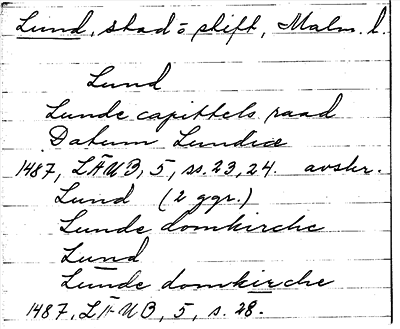 Lund, stad o stift, Malm. l.
Lund
Lunde capittels raad
Datum Lundiæ
1487, LÄUB, 5, ss. 23, 24. avskr.
Lund (2 ggr.)
Lunde domkirche
Lund
Lunde domkirche
1487, LÄUB, 5, s. 28.